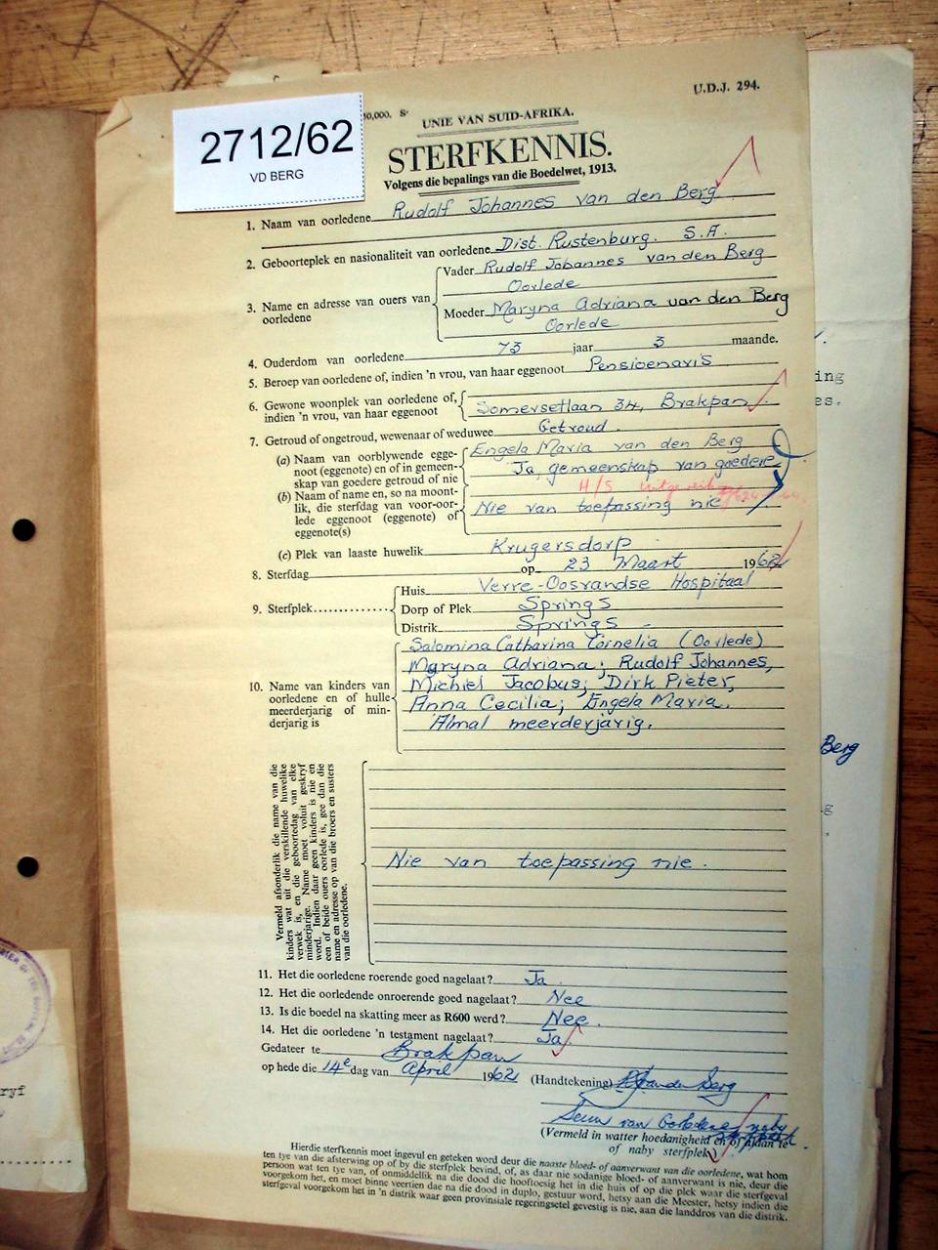 2712/62
VD BERG
U.D.J. 294.
UNIE VAN SUID-AFRIKA.
STERFKENNIS.
Volgens die bepalings van die Boedelwet, 1913.
1. Naam van oorledene Rudolf Johannes van den Berg
2. Geboorteplek en nasionaliteit van oorledene Dist. Rustenburg. S.A.
3. Name en adresse van ouers van oorledene
Vader Rudolf Johannes van den Berg
Oorlede
Moeder Maryna Adriana van den Berg
Oorlede
4. Ouderdom van oorledene 73 jaar 3 maande.
5. Beroep van oorledene of, indien 'n vrou, van haar eggenoot Pensioenaris
6. Gewone woonplek van oorledene of,
indien 'n vrou, van haar eggenoot
Somersetlaan 34, Brakpan.
7. Getroud of ongetroud, wewenaar of weduwee Getroud.
(a) Naam van oorblywende egge-
noot (eggenote) en of in gemeen-
skap van goedere getroud of nie
Engela Maria van den Berg
Ja, gemeenskap van goedere
H/S
(b) Naam of name en, so na moont-
lik, die sterfdag van voor-oor-
lede eggenoot (eggenote) of
eggenote(s)
Nie van toepassing nie
(c) Plek van laaste huwelik Krugersdorp
8. Sterfdag op 23 Maart 1962
9. Sterfplek
Huis Verre-Oosrandse Hospitaal
Dorp of Plek Springs
Distrik Springs
10. Name van kinders van
oorledene en of hulle
meerderjarig of min-
derjarig is
Salomina Catharina Cornelia (Oorlede)
Maryna Adriana; Rudolf Johannes,
Michiel Jacobus; Dirk Pieter,
Anna Cecilia; Engela Maria.
Almal meerderjarig.
Vermeld afsonderlik die name van die
kinders wat uit die verskillende huwelike
verwek is, en die geboortedag van elke
minderjarige. Name moet voluit geskryf
word. Indien daar geen kinders is nie en
een of beide ouers oorlede is, gee dan die
name en adresse op van die broers en susters
van die oorledene.
Nie van toepassing nie.
11. Het die oorledene roerende goed nagelaat? Ja
12. Het die oorledende onroerende goed nagelaat? Nee
13. Is die boedel na skatting meer as R600 werd? Nee.
14. Het die oorledene 'n testament nagelaat? Ja
Gedateer te Brakpan
op hede die 14e dag van April 1962 (Handtekening)
Seun van Oorledene, naby
(Vermeld in watter hoedanigheid en of
of naby sterfplek)
Hierdie sterfkennis moet ingevul en geteken word deur die naaste bloed- of aanverwant van die oorledene, wat hom
ten tye van die afsterwing op of by die sterfplek bevind, of, as daar nie sodanige bloed- of aanverwant is nie, deur die
persoon wat ten tye van, of onmiddellik na die dood die hooftoesig het in die huis of op die plek waar die sterfgeval
voorgekom het, en moet binne veertien dae na die dood in duplo, gestuur word, hetsy aan die Meester, hetsy indien die
sterfgeval voorgekom het in 'n distrik waar geen provinsiale regeringsetel gevestig is nie, aan die landdros van die distrik.
Berg